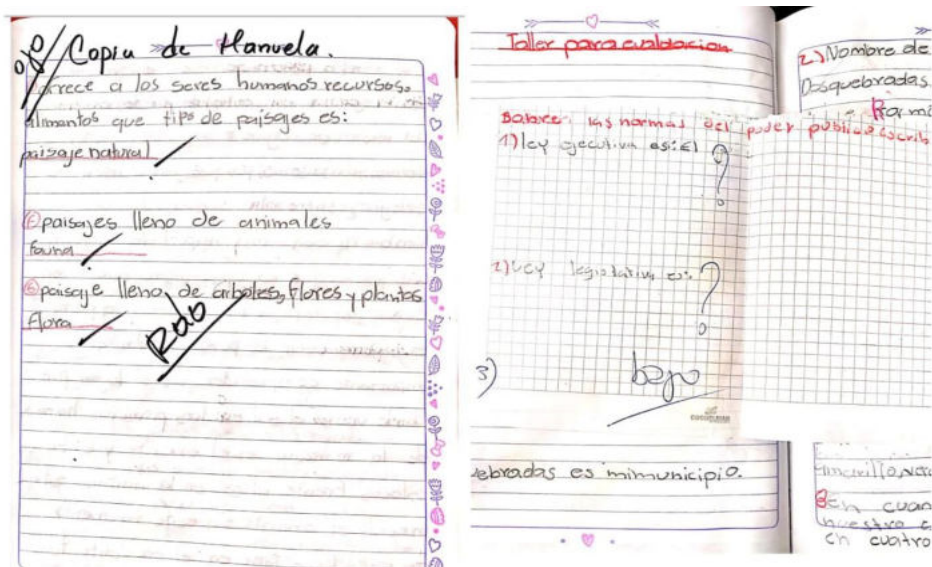 ojo Copia de Manuela.
ofrece a los seres humanos recursos,
alimantos que tipo de paisajes es:
paisaje natural
paisajes lleno de animales
fauna
paisaje lleno, de arboles, flores y plantas
flora
Rdo
Taller para evaldacion
las normas del poder público
1) ley ejecutiva es: El ?
2) Ley legislativa es: ?
3)
bajo
uebradas es mi municipio.
2.) Nombre de
Dosquebradas.
amarillo, ver
en cuan
nuestro c
en cuatro